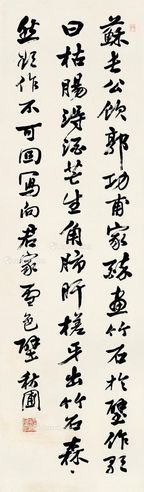 蘇長公飲郭功甫家醉畫竹石於壁作歌
曰枯腸得酒芒生角肺肝槎牙出竹石森
然欲作不可回寫向君家雪色壁 秋圃